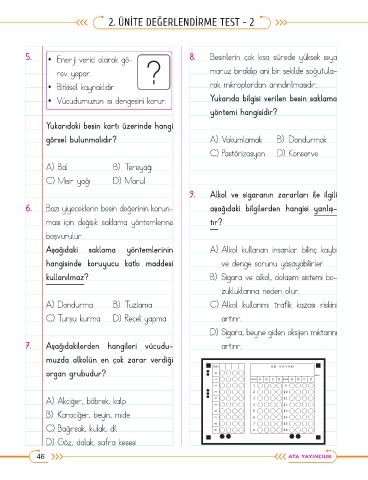 2. ÜNİTE DEĞERLENDİRME TEST - 2
5.
• Enerji verici olarak gö-
rev yapar.
• Bitkisel kaynaklıdır.
• Vücudumuzun ısı dengesini korur.
?
Yukarıdaki besin kartı üzerinde hangi
görsel bulunmalıdır?
A) Bal B) Tereyağı
C) Mısır yağı D) Marul
6. Bazı yiyeceklerin besin değerinin korun-
ması için değişik saklama yöntemlerine
başvurulur.
Aşağıdaki saklama yöntemlerinin
hangisinde koruyucu katkı maddesi
kullanılmaz?
A) Dondurma B) Tuzlama
C) Turşu kurma D) Reçel yapma
7. Aşağıdakilerden hangileri vücudu-
muzda alkolün en çok zarar verdiği
organ grubudur?
A) Akciğer, böbrek, kalp
B) Karaciğer, beyin, mide
C) Bağırsak, kulak, dil
D) Göz, dalak, safra kesesi
8. Besinlerin çok kısa sürede yüksek ısıya
maruz bırakılıp ani bir şekilde soğutula-
rak mikroplardan arındırılmasıdır.
Yukarıda bilgisi verilen besin saklama
yöntemi hangisidir?
A) Vakumlamak B) Dondurmak
C) Pastörizasyon D) Konserve
9. Alkol ve sigaranın zararları ile ilgili
aşağıdaki bilgilerden hangisi yanlış-
tır?
A) Alkol kullanan insanlar bilinç kaybı
ve denge sorunu yaşayabilirler.
B) Sigara ve alkol, dolaşım sistemi bo-
zukluklarına neden olur.
C) Alkol kullanımı trafik kazası riskini
artırır.
D) Sigara, beyne giden oksijen miktarını
artırır.
AD SOYAD
46
ATA YAYINCILIK